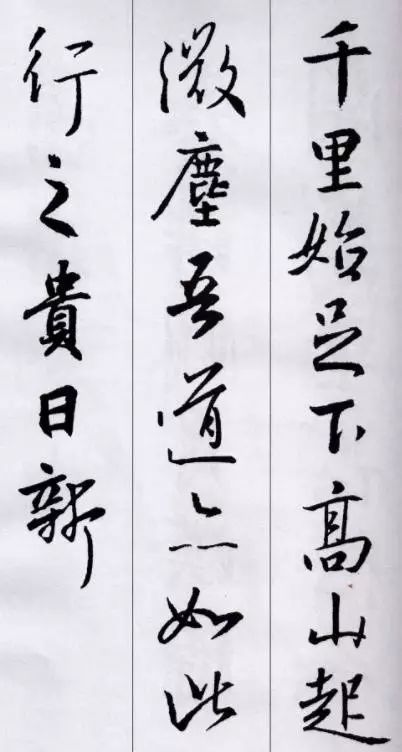 千里始足下高山起
微塵吾道亦如此
行之貴日新